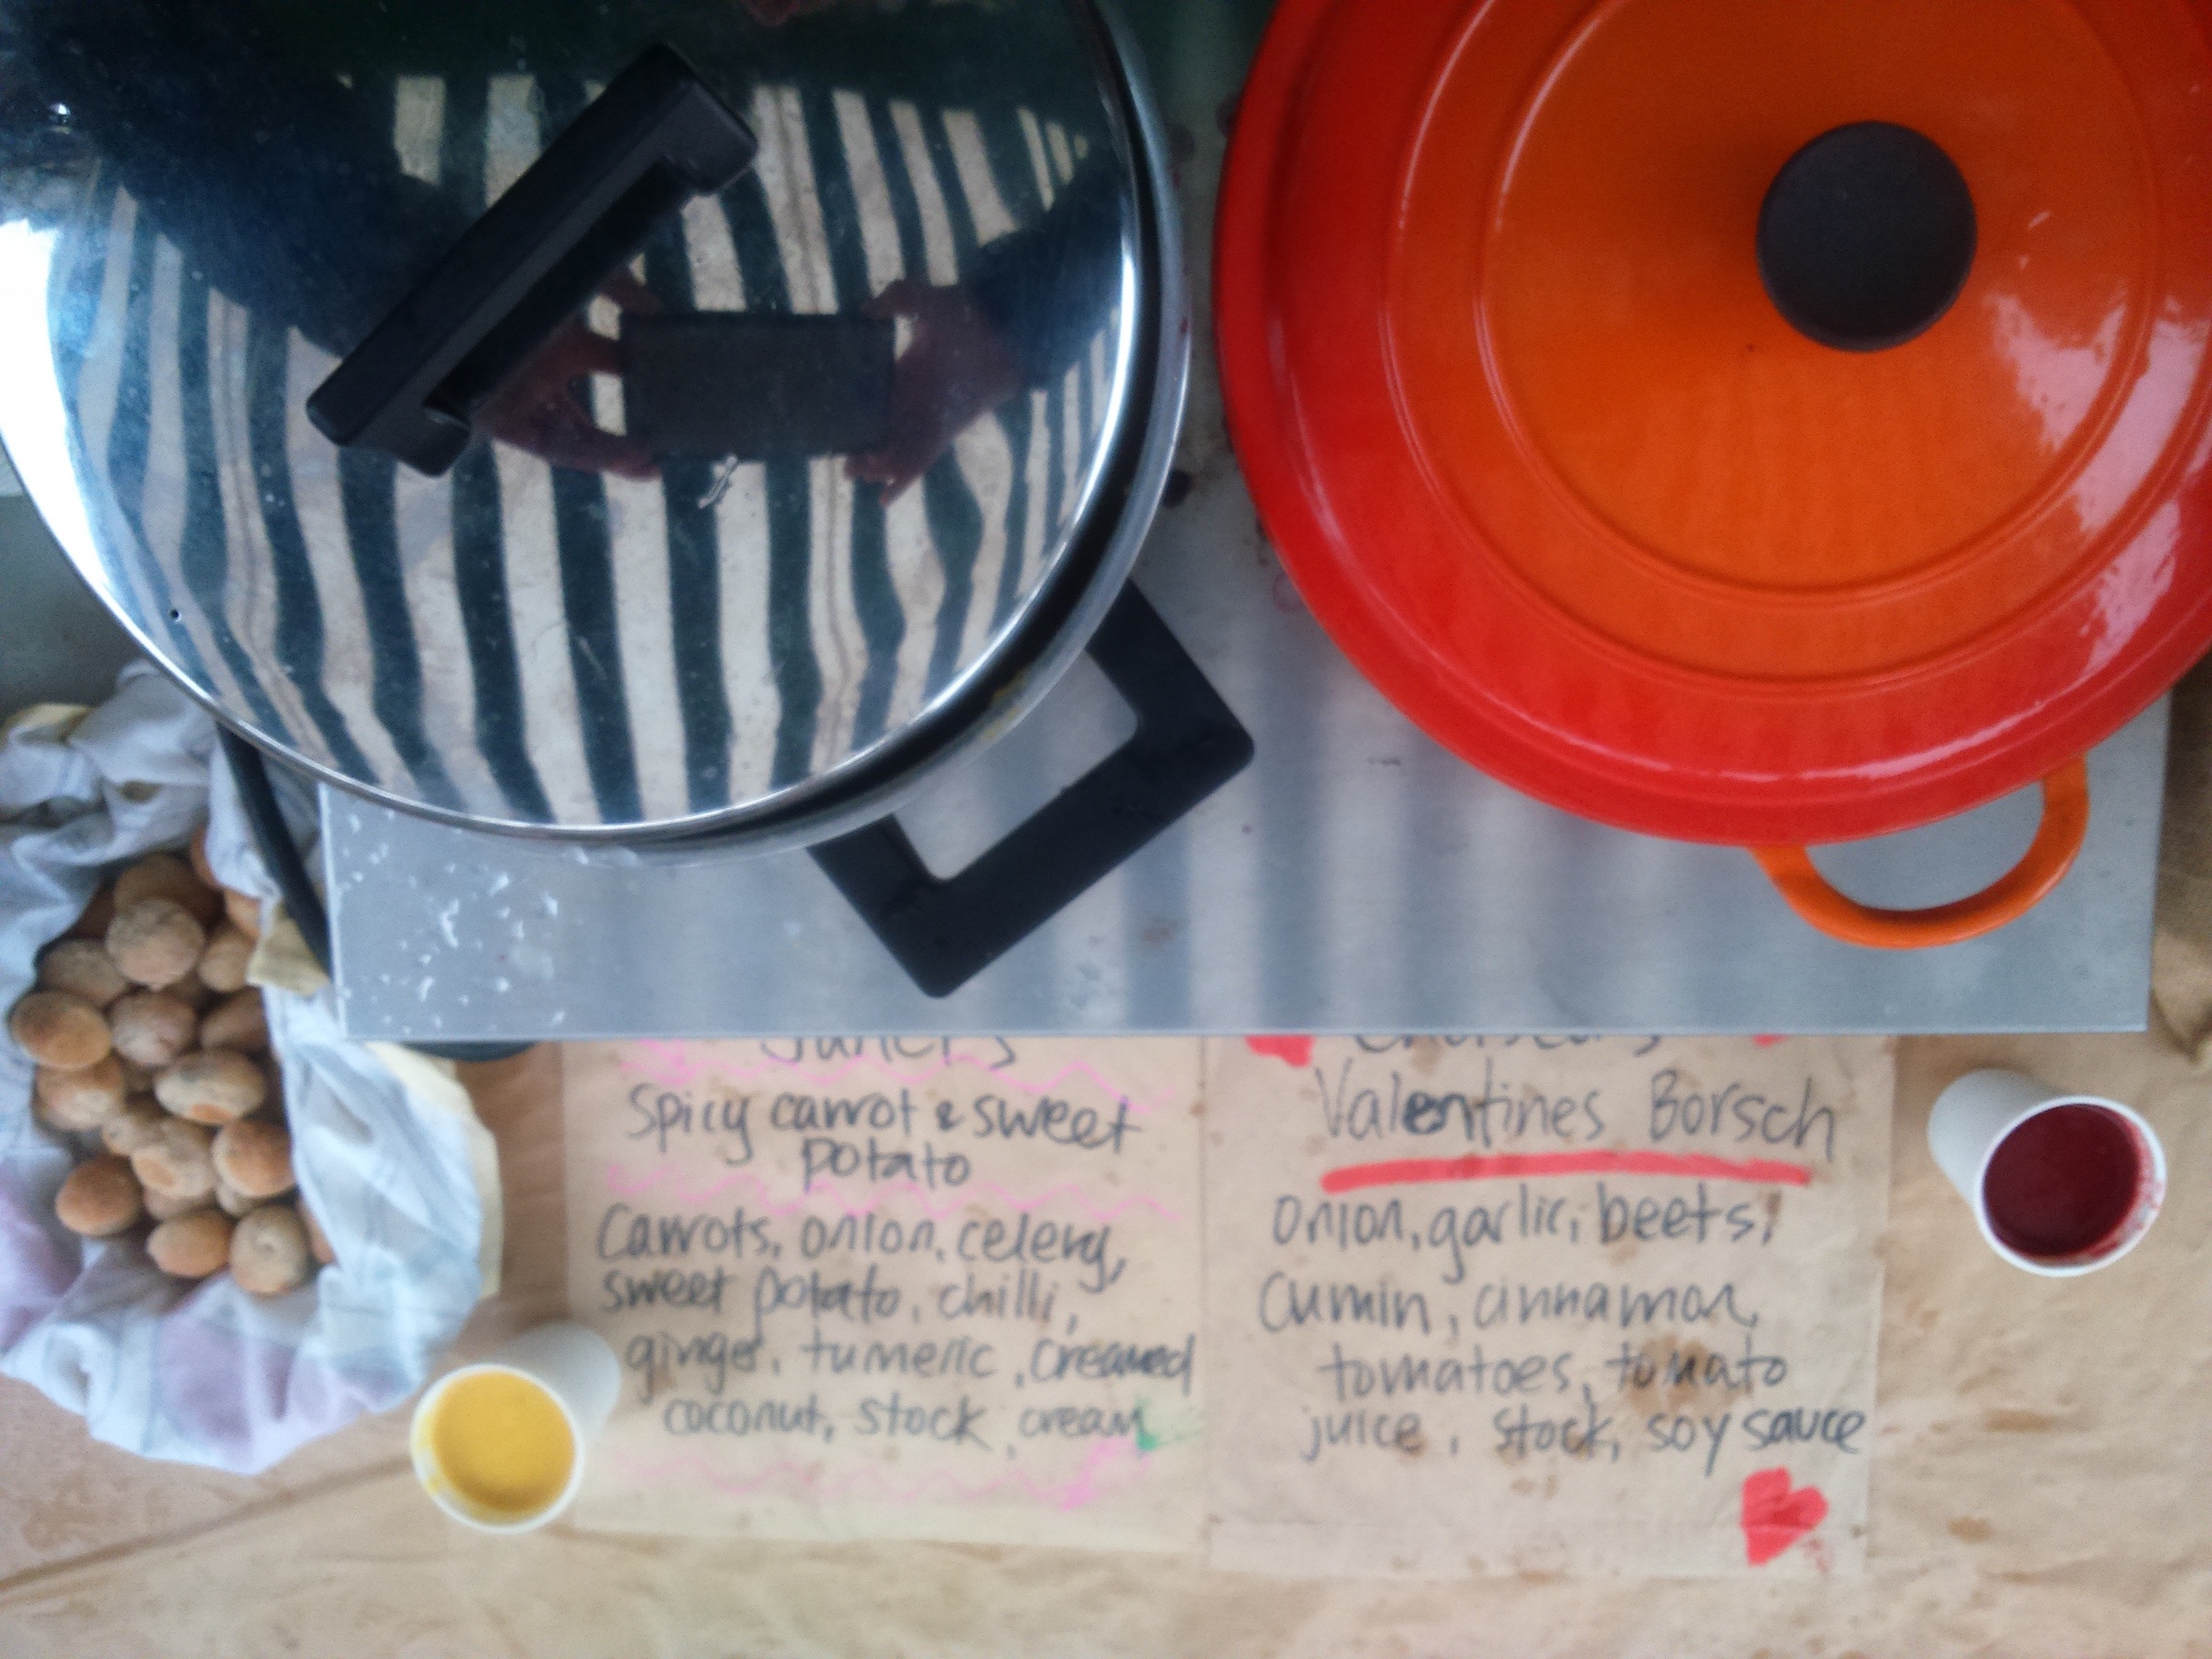 Spicy carrot & sweet
potato
Carrots, onion, celery,
sweet potato, chilli,
ginger, tumeric, creamed
coconut, stock, cream
Valentines Borsch
onion, garlic, beets,
cumin, cinnamon,
tomatoes, tomato
juice, stock, soy sauce